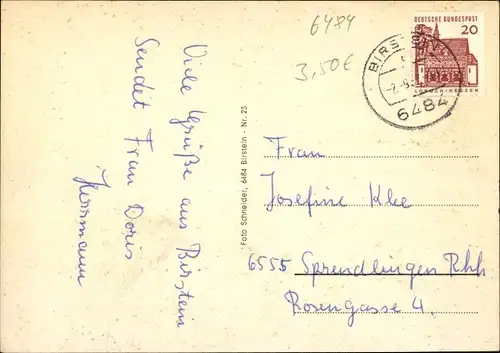 6484
3,50€
DEUTSCHE BUNDESPOST
20
LORSCH/HESSEN
BIRSTEIN
6484
Viele Grüße aus Birstein
Sendet Frau Doris
Herrmann
Foto Schneider, 6484 Birstein - Nr. 23
Frau
Josefine Klee
6555 Sprendlingen Rhh
Rosengasse 4.